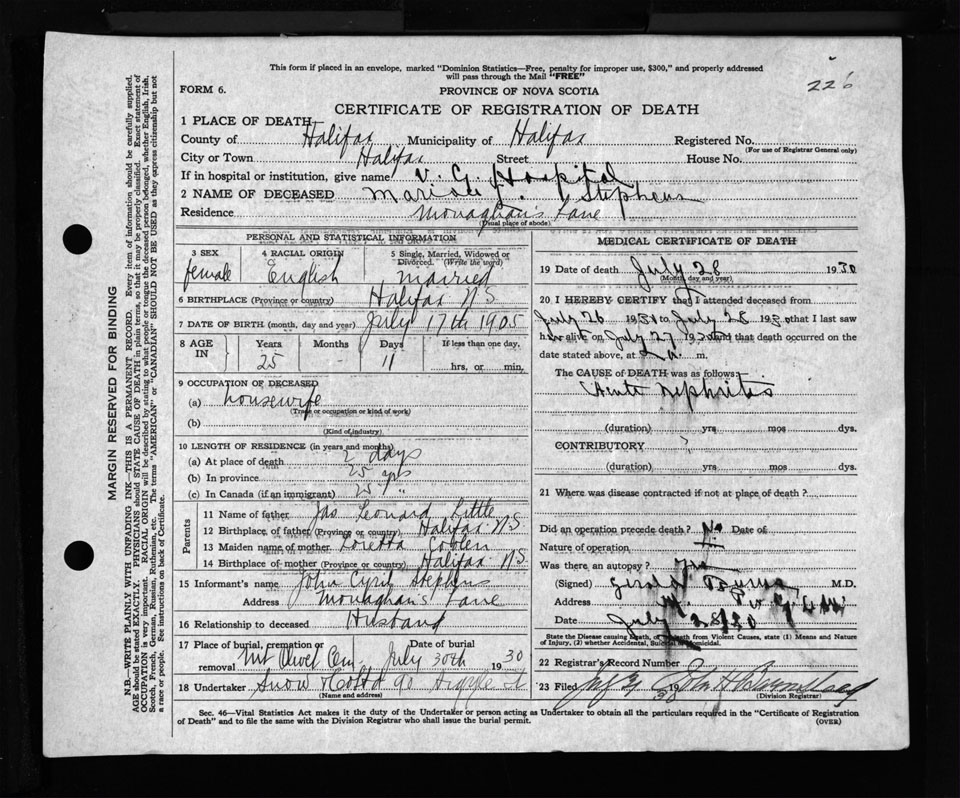 This form if placed in an envelope, marked "Dominion Statistics—Free, penalty for improper use, $300," and properly addressed
will pass through the Mail "FREE"
226
FORM 6.
PROVINCE OF NOVA SCOTIA
CERTIFICATE OF REGISTRATION OF DEATH
1 PLACE OF DEATH
County of Halifax Municipality of Halifax Registered No.
(For use of Registrar General only)
City or Town Halifax Street House No.
If in hospital or institution, give name V. G. Hospital
2 NAME OF DECEASED Stephens
Residence Monaghan's Lane
(Usual place of abode)
PERSONAL AND STATISTICAL INFORMATION
3 SEX
female
4 RACIAL ORIGIN
English
5 Single, Married, Widowed or
Divorced. (Write the word)
married
6 BIRTHPLACE (Province or country) Halifax N.S.
7 DATE OF BIRTH (month, day and year) July 17th 1905
8 AGE IN
Years Months Days If less than one day,
25 - 11 hrs, or min,
9 OCCUPATION OF DECEASED
(a) housewife
(Trade or occupation or kind of work)
(b)
(Kind of industry)
10 LENGTH OF RESIDENCE (in years and months)
(a) At place of death 2 days
(b) In province 25 yrs
(c) In Canada (if an immigrant) 25 "
Parents
11 Name of father Jas Leonard Little
12 Birthplace of father (Province or country) Halifax N.S
13 Maiden name of mother Loretta Coolen
14 Birthplace of mother (Province or country) Halifax N.S
15 Informant's name John Cyril Stephens
Address Monaghan's Lane
16 Relationship to deceased Husband
17 Place of burial, cremation or removal Mt Olivet Cem. Date of burial July 30th 1930
18 Undertaker Snow & Co Ltd 90 Argyle St
(Name and address)
MEDICAL CERTIFICATE OF DEATH
19 Date of death July 28 1930
(Month, day and year)
20 I HEREBY CERTIFY that I attended deceased from
July 26 1930 to July 28 1930 that I last saw
her alive on July 27 1930 and that death occurred on the
date stated above, at m.
The CAUSE of DEATH was as follows:
Acute nephritis
(duration) yrs mos dys.
CONTRIBUTORY ?
(duration) yrs mos dys.
21 Where was disease contracted if not at place of death?
Did an operation precede death? No Date of
Nature of operation
Was there an autopsy?
(Signed) Gerald M.D.
Address
Date July 28/30
State the Disease causing Death, or, Death from Violent Causes, state (1) Means and Nature
of Injury, (2) whether Accidental, Suicidal or Homicidal.
22 Registrar's Record Number
23 Filed
(Division Registrar)
Sec. 46—Vital Statistics Act makes it the duty of the Undertaker or person acting as Undertaker to obtain all the particulars required in the "Certificate of Registration
of Death" and to file the same with the Division Registrar who shall issue the burial permit.
(OVER)
MARGIN RESERVED FOR BINDING
N.B.—WRITE PLAINLY WITH UNFADING INK—THIS IS A PERMANENT RECORD. Every item of information should be carefully supplied.
AGE should be stated EXACTLY. PHYSICIANS should STATE CAUSE OF DEATH in plain terms, so that it may be properly classified. Exact statement of
OCCUPATION is very important. RACIAL ORIGIN will be described by stating to what people or tongue the deceased person belonged, whether English, Irish,
Scotch, French, German, Russian, Ruthenian, etc. The terms "AMERICAN" or "CANADIAN" SHOULD NOT BE USED as they express citizenship but not
a race or people. See instructions on back of Certificate.